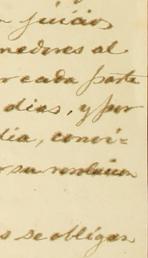 n juicio
nedores al
r cada parte
dias, y por
dia, convi-
r su resolucion
s se obligan